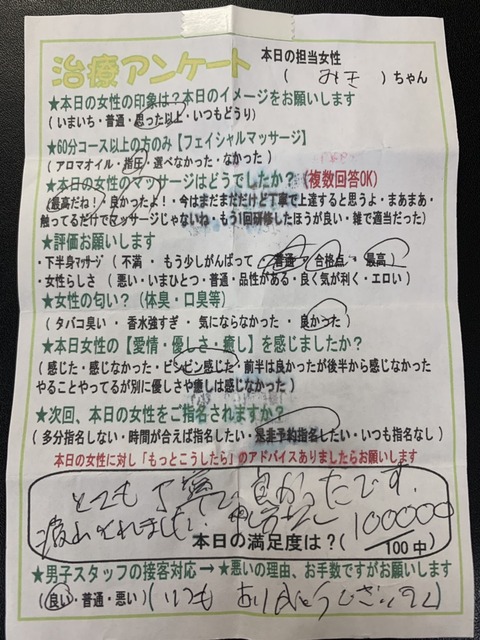 治療アンケート
本日の担当女性
( みき )ちゃん
★本日の女性の印象は？本日のイメージをお願いします
(いまいち・普通・思った以上・いつもどうり)
★60分コース以上の方のみ【フェイシャルマッサージ】
(アロマオイル・指圧・選べなかった・なかった)
★本日の女性のマッサージはどうでしたか？(複数回答OK)
(最高だね！・良かったよ！・今はまだまだだけど丁寧で上達すると思うよ・まあまあ・
触ってるだけでマッサージじゃないね・もう1回研修したほうが良い・雑で適当だった)
★評価お願いします
・下半身マッサージ (不満 ・ もう少しがんばって ・ 普通 ・ 合格点 ・ 最高)
・女性らしさ (悪い・いまひとつ・普通・品性がある・良く気が利く・エロい)
★女性の匂い？(体臭・口臭等)
(タバコ臭い ・ 香水強すぎ ・ 気にならなかった ・ 良かった)
★本日女性の【愛情・優しさ・癒し】を感じましたか？
(感じた・感じなかった・ビンビン感じた・前半は良かったが後半から感じなかった
やることやってるが別に優しさや癒しは感じなかった)
★次回、本日の女性をご指名されますか？
(多分指名しない・時間が合えば指名したい・是非予約指名したい・いつも指名なし)
本日の女性に対し「もっとこうしたら」のアドバイスありましたらお願いします
とても丁寧で良かったです.
疲れとれました!
本日の満足度は？( 100000
/100中)
★男子スタッフの接客対応 → ★悪いの理由、お手数ですがお願いします
(良い・普通・悪い) (いつもありがとうございます)